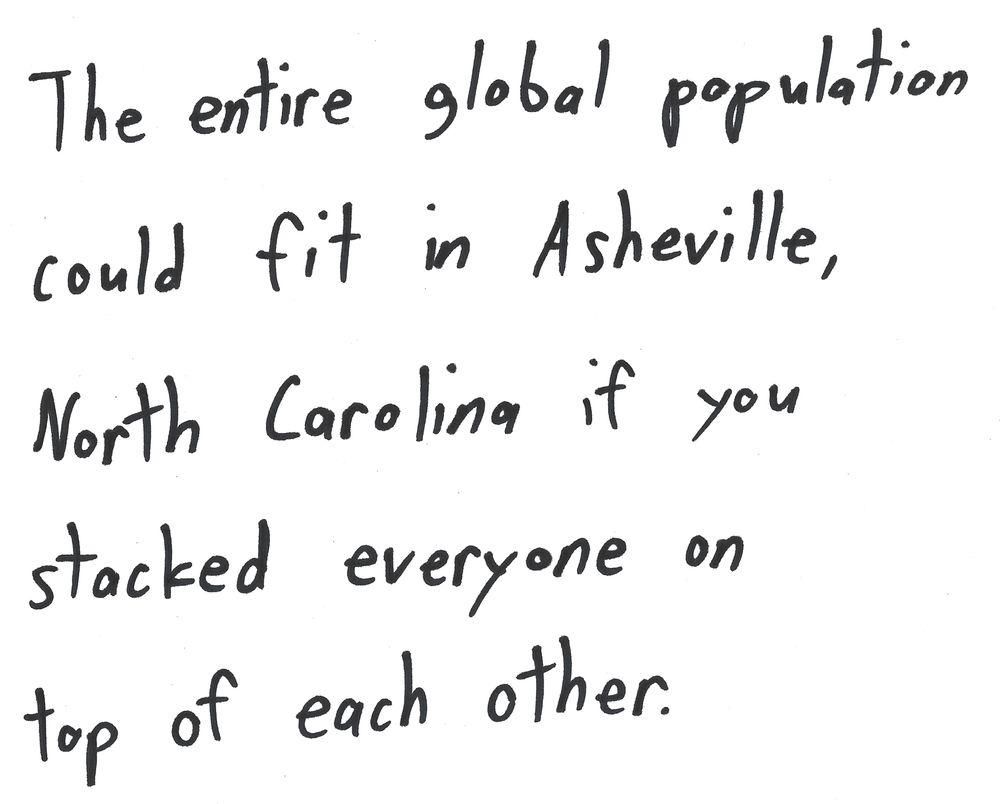 The entire global population
could fit in Asheville,
North Carolina if you
stacked everyone on
top of each other.